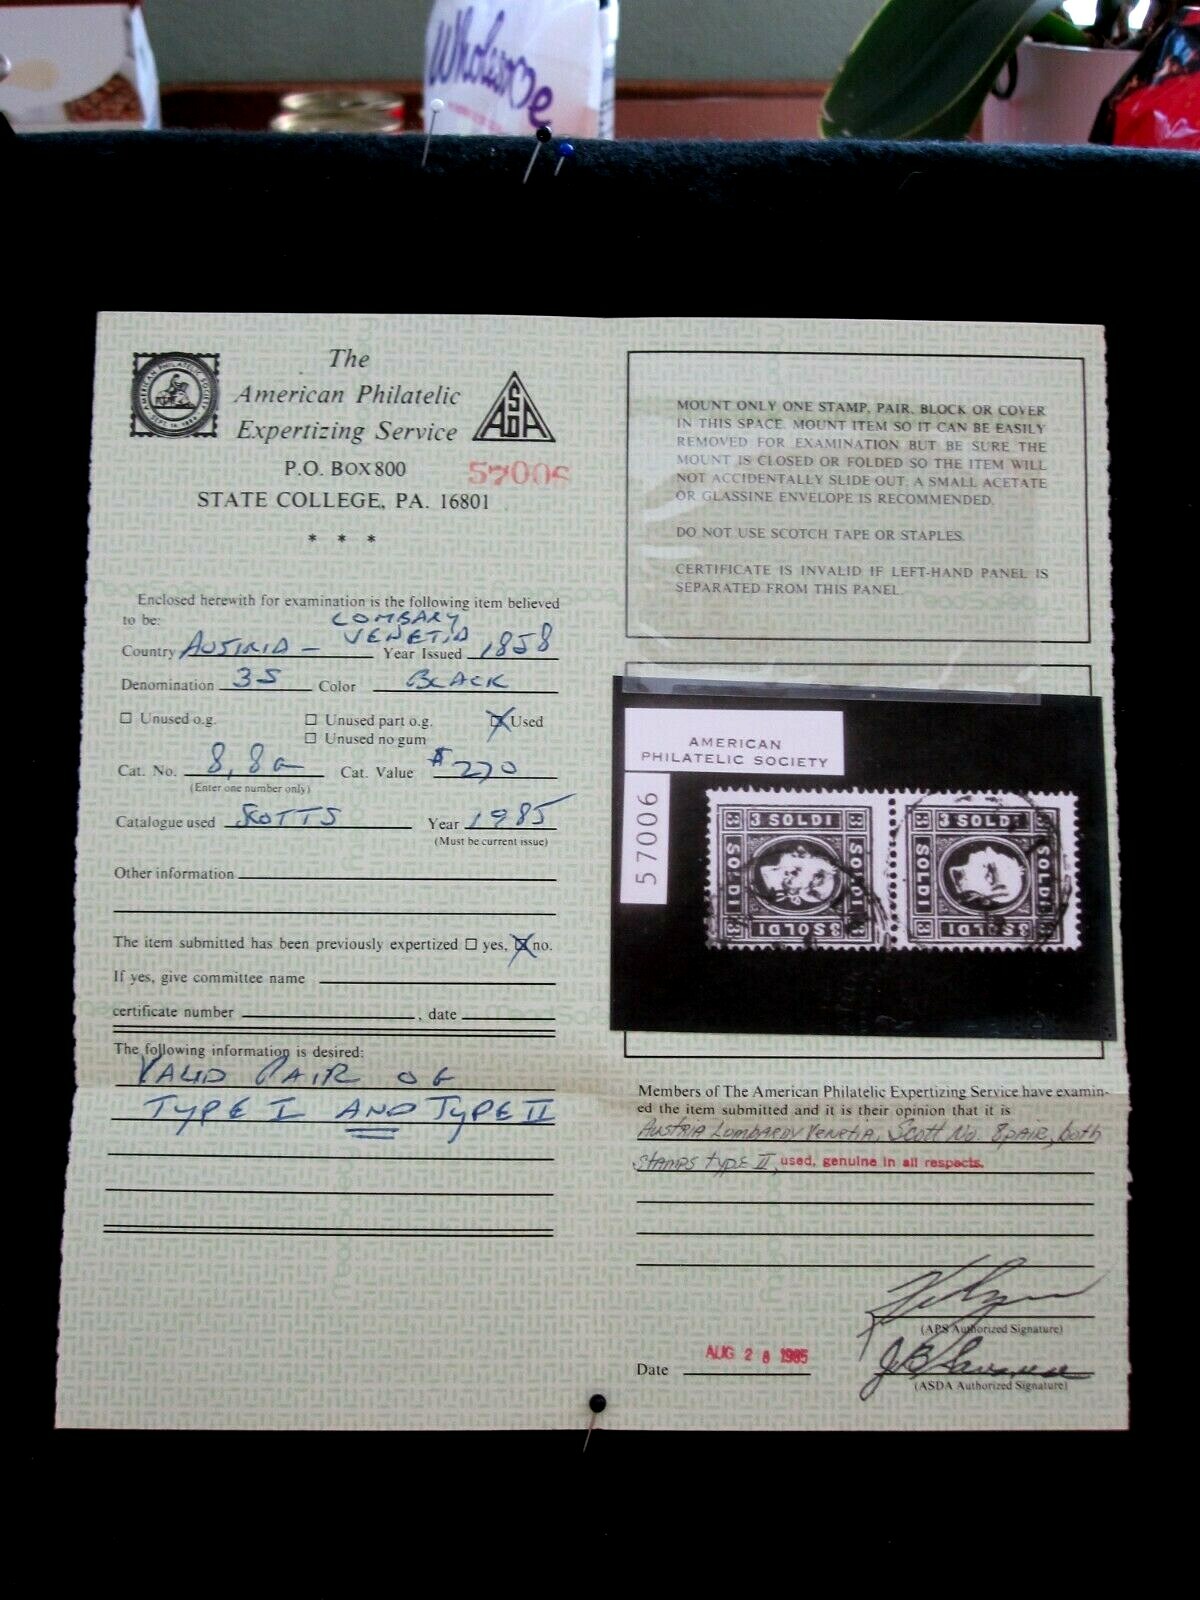 Wholesome
AMERICAN PHILATELIC SOCIETY
SEPT. 14, 1886
The
American Philatelic
Expertizing Service
ASDA
P.O. BOX 800
57006
STATE COLLEGE, PA. 16801
* * *
Enclosed herewith for examination is the following item believed
to be:
LOMBARY
Country AUSTRIA - VENETIA Year Issued 1858
Denomination 3S Color BLACK
☐ Unused o.g. ☐ Unused part o.g. ☒ Used
☐ Unused no gum
Cat. No. 8, 8a Cat. Value $270
(Enter one number only)
Catalogue used SCOTTS Year 1985
(Must be current issue)
Other information
The item submitted has been previously expertized ☐ yes, ☒ no.
If yes, give committee name
certificate number , date
The following information is desired:
VALID PAIR OF
TYPE I AND TYPE II
MOUNT ONLY ONE STAMP, PAIR, BLOCK OR COVER
IN THIS SPACE. MOUNT ITEM SO IT CAN BE EASILY
REMOVED FOR EXAMINATION BUT BE SURE THE
MOUNT IS CLOSED OR FOLDED SO THE ITEM WILL
NOT ACCIDENTALLY SLIDE OUT. A SMALL ACETATE
OR GLASSINE ENVELOPE IS RECOMMENDED.
DO NOT USE SCOTCH TAPE OR STAPLES.
CERTIFICATE IS INVALID IF LEFT-HAND PANEL IS
SEPARATED FROM THIS PANEL.
AMERICAN
PHILATELIC SOCIETY
57006
3 SOLDI
SOLDI
SOLDI
3 SOLDI
3 SOLDI
SOLDI
SOLDI
3 SOLDI
Members of The American Philatelic Expertizing Service have examin-
ed the item submitted and it is their opinion that it is
Austria Lombardy Venetia, Scott No. 8 pair, both
stamps type II, used, genuine in all respects.
(APS Authorized Signature)
Date AUG 28 1985
(ASDA Authorized Signature)